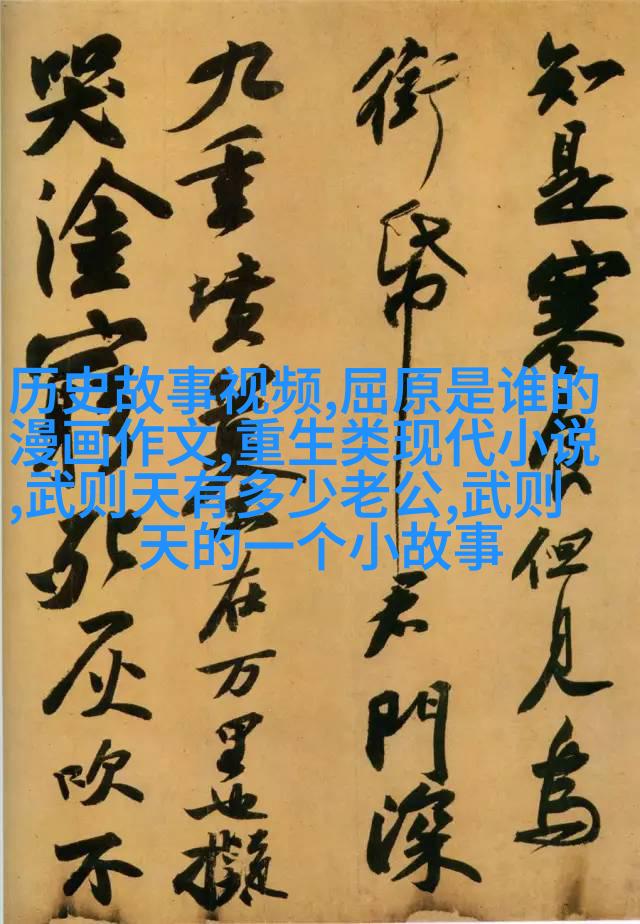 知是寒食但見烏
銜帋君門深
九重墳墓在万里也擬
哭塗窮死灰吹不
历史故事视频,屈原是谁的
漫画作文,重生类现代小说
,武则天有多少老公,武则
天的一个小故事